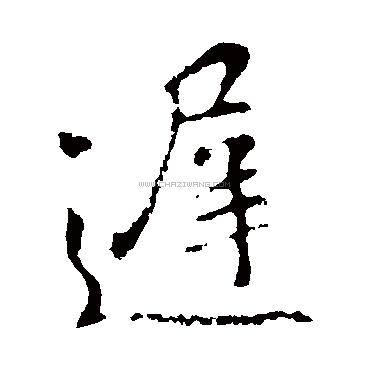 遲
WWW.CHAZIWANG.COM